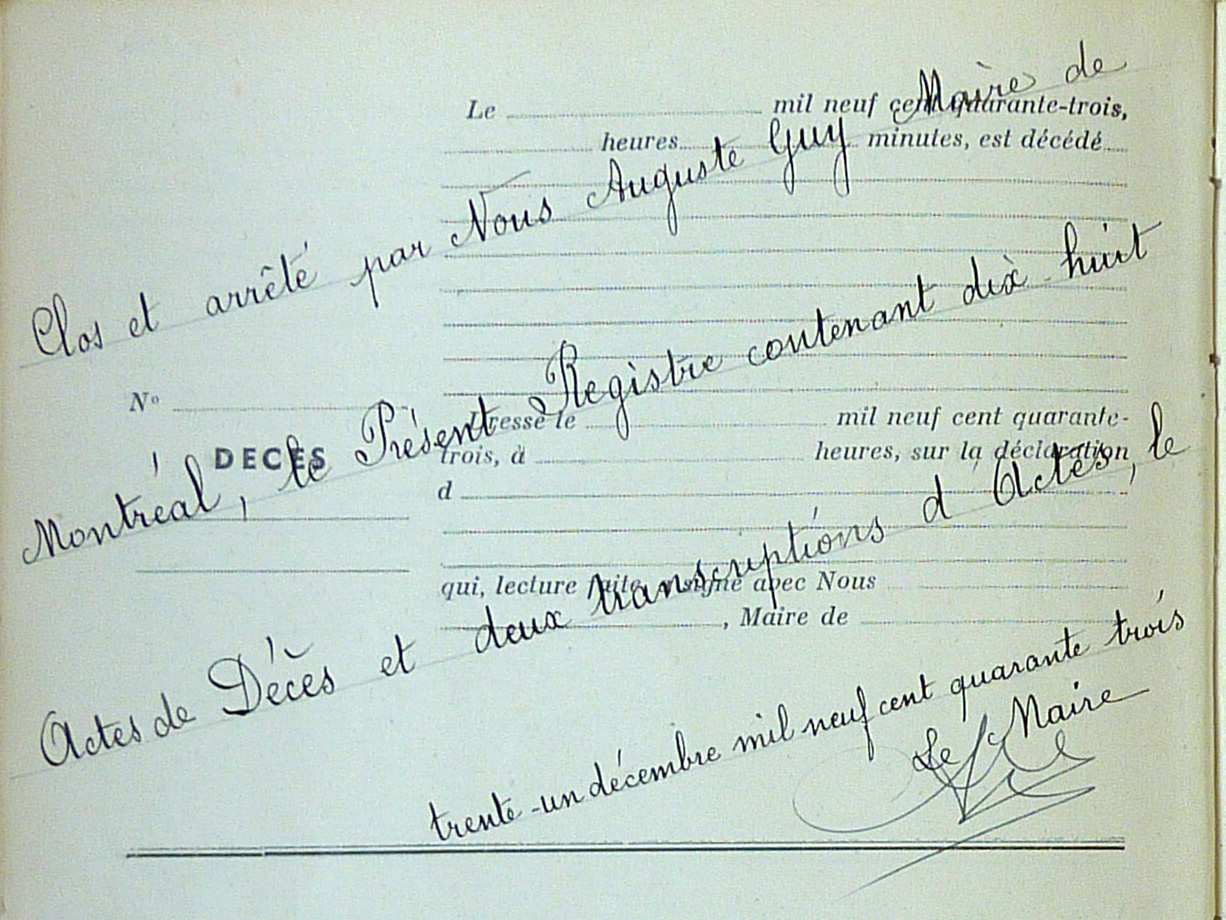 Le mil neuf cent quarante-trois,
heures minutes, est décédé
Clos et arrêté par Nous Auguste Guy Maire de
Nº
DÉCÈS
Dressé le mil neuf cent quarante-
trois, à heures, sur la déclaration
d
Montréal, le Présent Registre contenant dix-huit
qui, lecture faite, signé avec Nous
, Maire de
Actes de Décès et deux transcriptions d'Actes, le
trente-un décembre mil neuf cent quarante trois
Le Maire